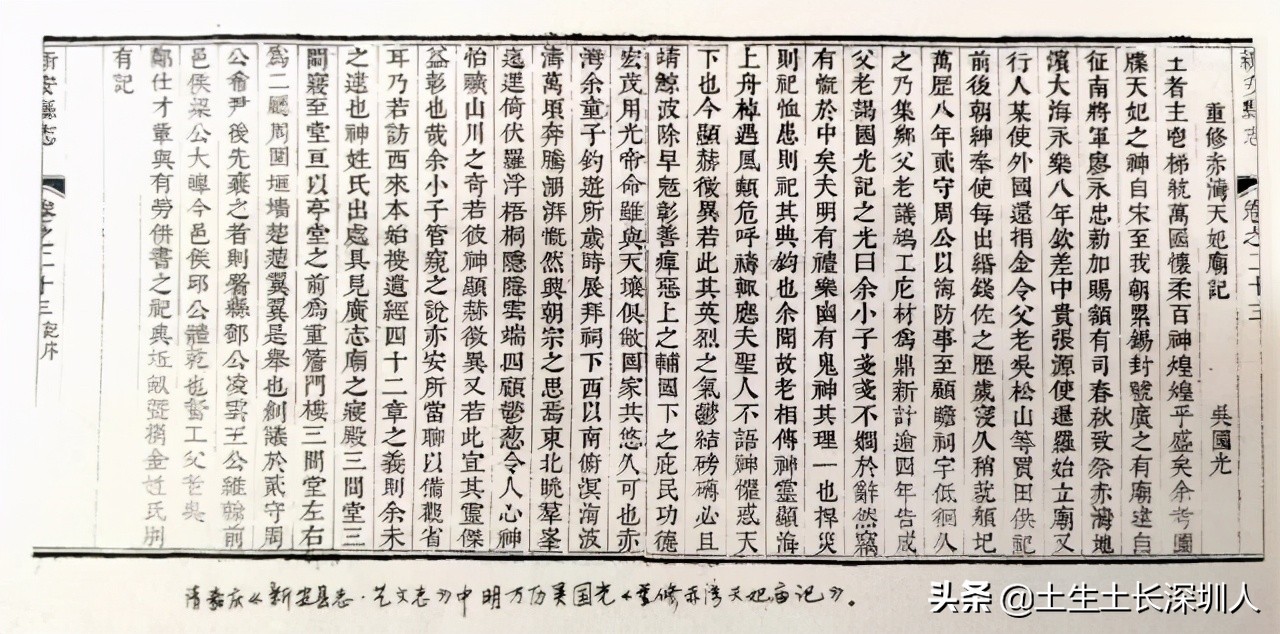 新安縣志 卷之二十三
重修赤灣天妃廟記 吳國光
王者主鬯梯航萬國懷柔百神煌煌乎盛矣余考國
牒天妃之神自宋至我朝累錫封號廣之有廟遠自
征南將軍廖永忠勅加賜額有司春秋致祭赤灣地
濱大海永樂八年欽差中貴張源使暹羅始立廟又
行人某使外國還捐金令父老吳松山等買田供祀
前後朝紳奉使每出緡錢佐之歷歲寖久稍就頹圮
萬歷八年貳守周公以海防事至顧瞻祠宇低徊久
之乃集鄉父老議鳩工庀材舊鼎新計逾四年告成
父老謁國光記之光曰余小子戔戔不嫺於辭然竊
有慨於中矣夫明有禮樂幽有鬼神其理一也捍災
則祀恤患則祀其典鈞也余聞故老相傳神靈顯海
上舟棹遇風顛危呼禱輒應夫聖人不語神懼惑天
下也今顯赫徵異若此其英烈之氣鬱結磅礡必且
靖鯨波除旱魃彰善癉惡上之輔國下之庇民功德
宏茂用光帝命雖與天壤俱敝國家共悠久可也赤
灣余童子釣遊所歲時展拜祠下西以南俯溟海波
濤萬頃奔騰湖湃慨然興朝宗之思焉東北眺羣峯
逶迤倚伏羅浮梧桐隱隱雲端四顧鬱葱令人心神
怡曠山川之奇若彼神顯赫徵異又若此宜其靈傑
益彰也哉余小子管窺之說亦安所當聊以備觀省
耳乃若訪西來本始按遺經四十二章之義則余未
之逮也神姓氏出處具見廣志廟之寢殿三間堂三
間寢至堂亘以亭堂之前爲重簷門樓三間堂左右
爲二廳周圍堰墻楚楚翼翼是舉也創議於貳守周
公希尹後先襄之者則署縣鄧公凌雲王公維翰前
邑侯梁公大皥今邑侯邱公體乾也督工父老吳
鄭仕才輩與有勞併書之祀典近 號捐金姓氏别
有記
新安縣志 卷之二十三 記序
清嘉庆《新安县志·艺文志》中明万历吴国光《重修赤湾天妃庙记》。
头条 @土生土长深圳人